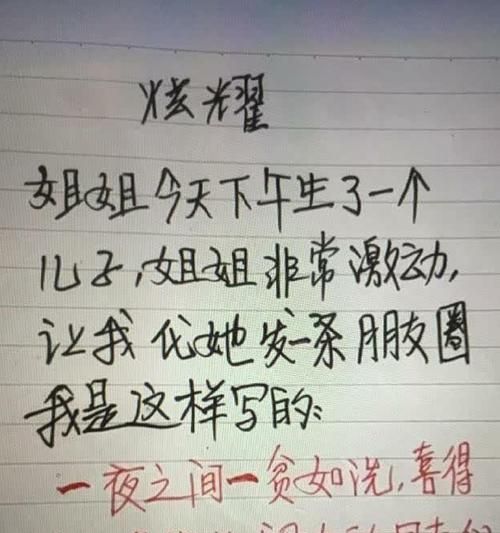 炫耀
姐姐今天下午生了一个
儿子,姐姐非常激动,
让我代她发一条朋友圈
我是这样写的:
一夜之间一贫如洗,喜得